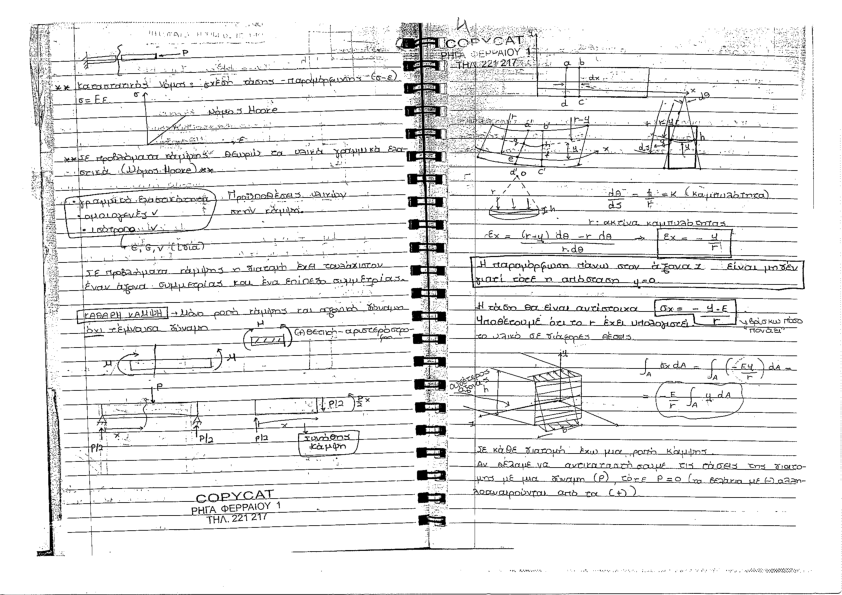 P
** Καταστατικός Νόμος: σχέση τάσης - παραμόρφωσης (σ-ε)
σ = Ε ε
σ
Νόμος Hooke
ε
** Σε προβλήματα κάμψης θεωρώ τα υλικά γραμμικά ελα-
στικά (Νόμος Hooke) **
• γραμμικά ελαστικότητα
• ομοιογενές ✓
• ισότροπο ✓
Προϋποθέσεις υλικών
στην κάμψη.
Ε, G, ν (ίδια)
Σε προβλήματα κάμψης η διατομή έχει τουλάχιστον
έναν άξονα συμμετρίας και ένα επίπεδο συμμετρίας.
ΚΑΘΑΡΗ ΚΑΜΨΗ → Μόνο ροπή κάμψης και αξονική δύναμη
όχι τέμνουσα δύναμη
M M
(Αθετική-αριστερόστρο-
φη)
M M
P
x
P/2 P/2
P/2 x P/2 P/2 x
Συνήθης
κάμψη
COPYCAT
ΡΗΓΑ ΦΕΡΡΑΙΟΥ 1
ΤΗΛ. 221 217
4
COPYCAT
ΡΗΓΑ ΦΕΡΡΑΙΟΥ 1
ΤΗΛ. 221 217
a b
dx
d c
x
dθ
r r-y
x
r h
dθ/ds = 1/r = κ (καμπυλότητα)
r: ακτίνα καμπυλότητας
εx = (r-y) dθ - r dθ / r dθ → εx = - y/r
Η παραμόρφωση πάνω στον άξονα z είναι μηδέν
γιατί τότε η απόσταση y=0
Η τάση θα είναι αντίστοιχα σx = - y·E / r
Υποθέτουμε ότι το r έχει υπολογιστεί
βρίσκω πόσο
πονάει
το υλικό σε διάφορες θέσεις.
ουδέτερος
άξονας
h
y
z
b
∫A σx dA = ∫A (-Ey/r) dA =
= -E/r ∫A y dA
Σε κάθε διατομή έχω μια ροπή κάμψης.
Αν θέλαμε να αντικαταστήσουμε τις τάσεις της διατο-
μής με μια δύναμη (P), τότε P=0 (τα βελάκια με (-) αλλη-
λοαναιρούνται από τα (+)).